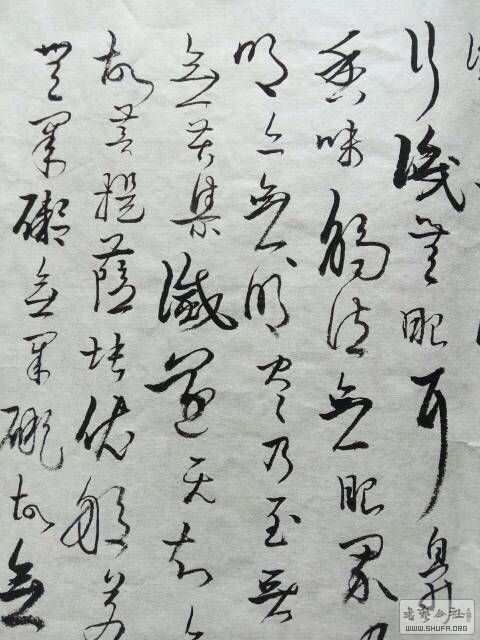 行識無眼耳鼻
香味觸法無眼界乃
明亦無明盡乃至無
無苦集滅道无知
故菩提薩埵依般若
無罣礙無罣礙故無
书艺公社
WWW.SHUFA.ORG